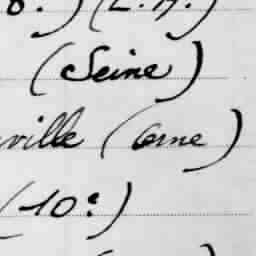 (Seine)
ville (Orne)
(10e)